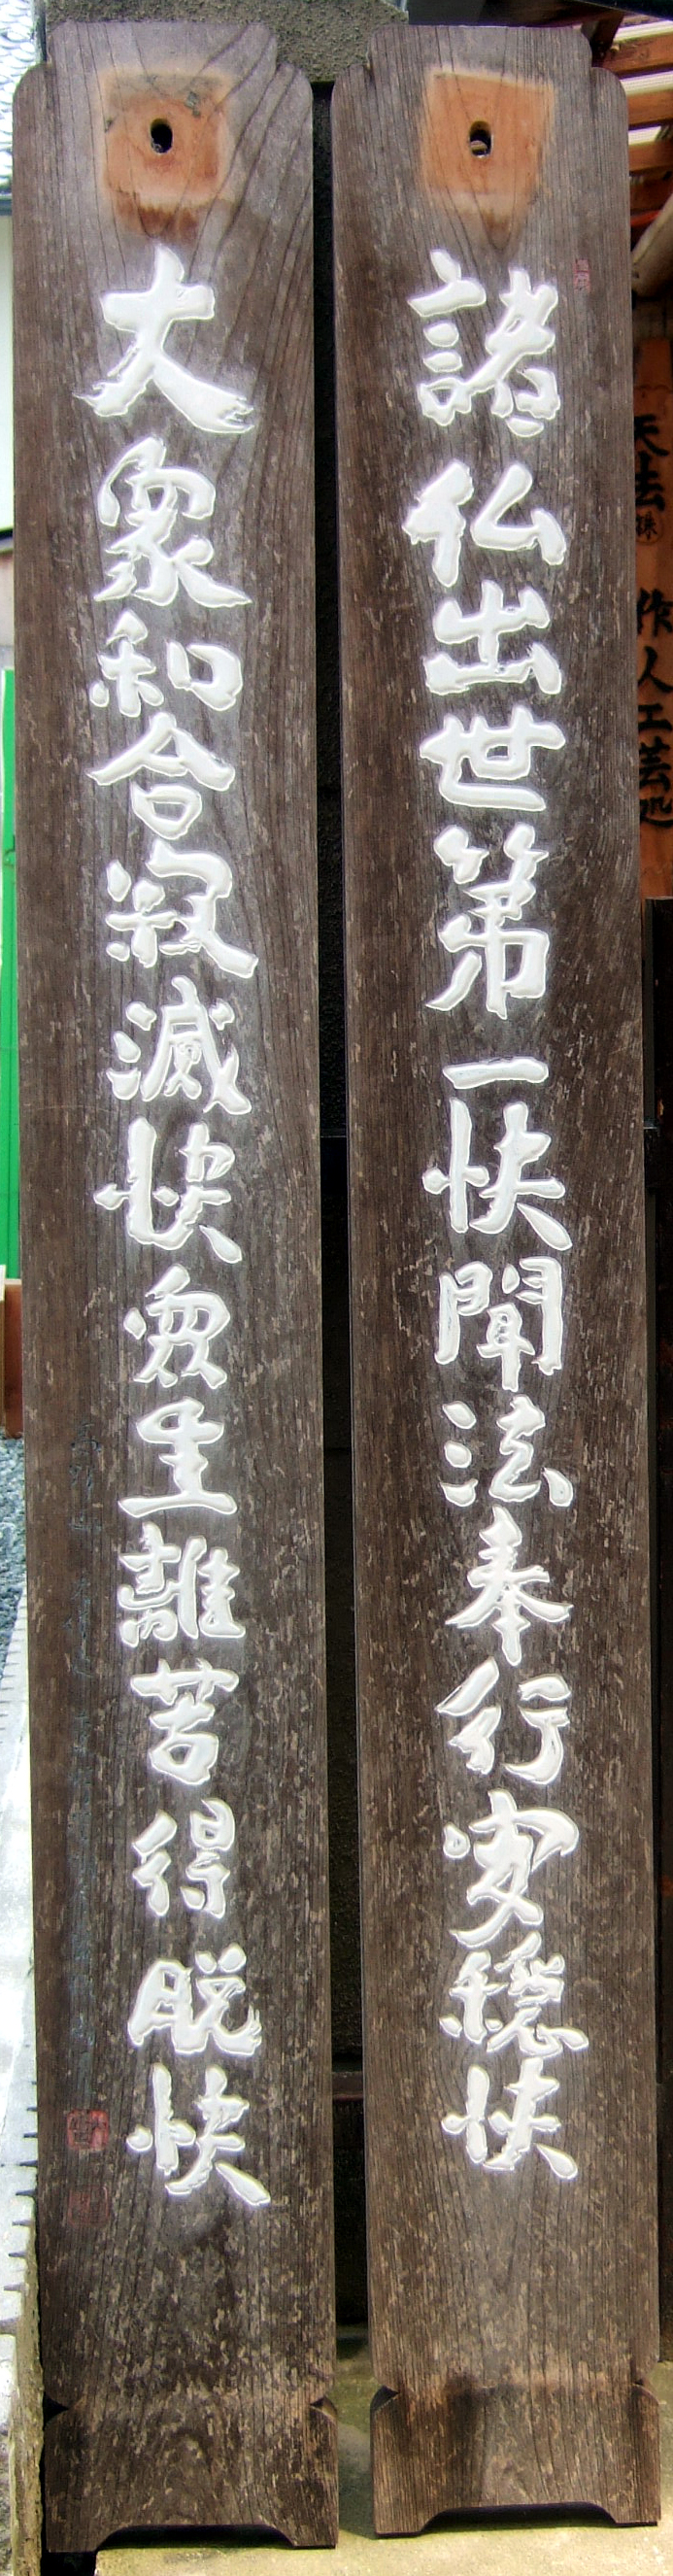 天法
作人工芸処
諸仏出世第一快聞法奉行安穏快
大衆和合寂滅快衆生離苦得脱快